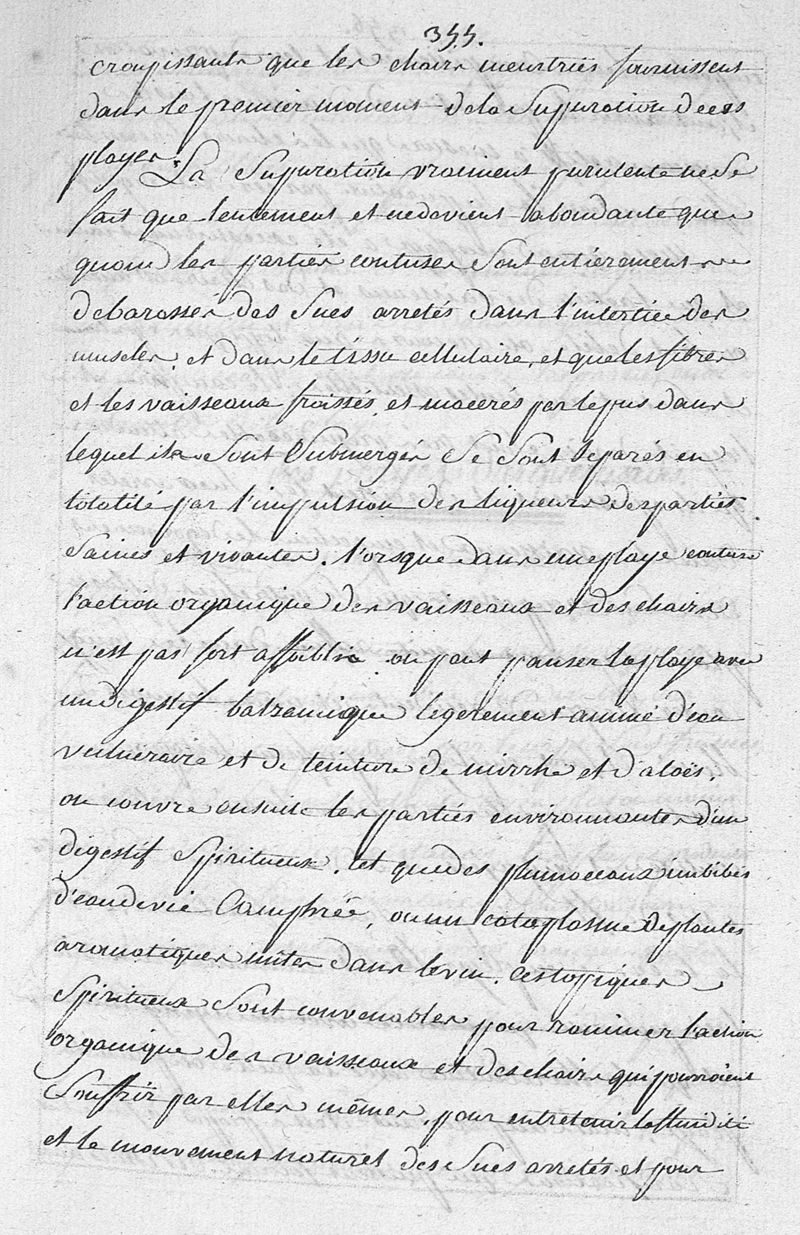 355.
croupissants que les chairs meurtries fournissent
dans le premier moment de la Supuration de ces
playes. La Supuration vraiment purulente ne Se
fait que lentement et ne devient abondante que
quand les parties contuses Sont entièrement
debarasses des Sucs arretés dans l'interstice des
muscles, et dans le tissu cellulaire, et que les fibres
et les vaisseaux froissés, et macerés par le pus dans
lequel ils Sont Submergés Se Sont Separés en
totalité par l'impulsion des liqueurs des parties
Saines et vivantes. Lorsque dans une playe contuse
l'action organique des vaisseaux et des chairs
n'est pas fort affoiblie on peut panser la playe avec
un digestif balzamique legerement animé d'eau
vulneraire et de teinture de mirrhe et d'aloës.
on couvre ensuite les parties environnantes d'un
digestif Spiritueux. tel que des plumaceaux imbibés
d'eau de vie Camphrée, ou un cataplasme de plantes
aromatiques cuites dans le vin. ces topiques
Spiritueux Sont convenables pour ranimer l'action
organique des vaisseaux et des chairs qui pourroient
Souffrir par elles mêmes, pour entretenir la fluidité
et le mouvement naturel des Sucs arretés et pour